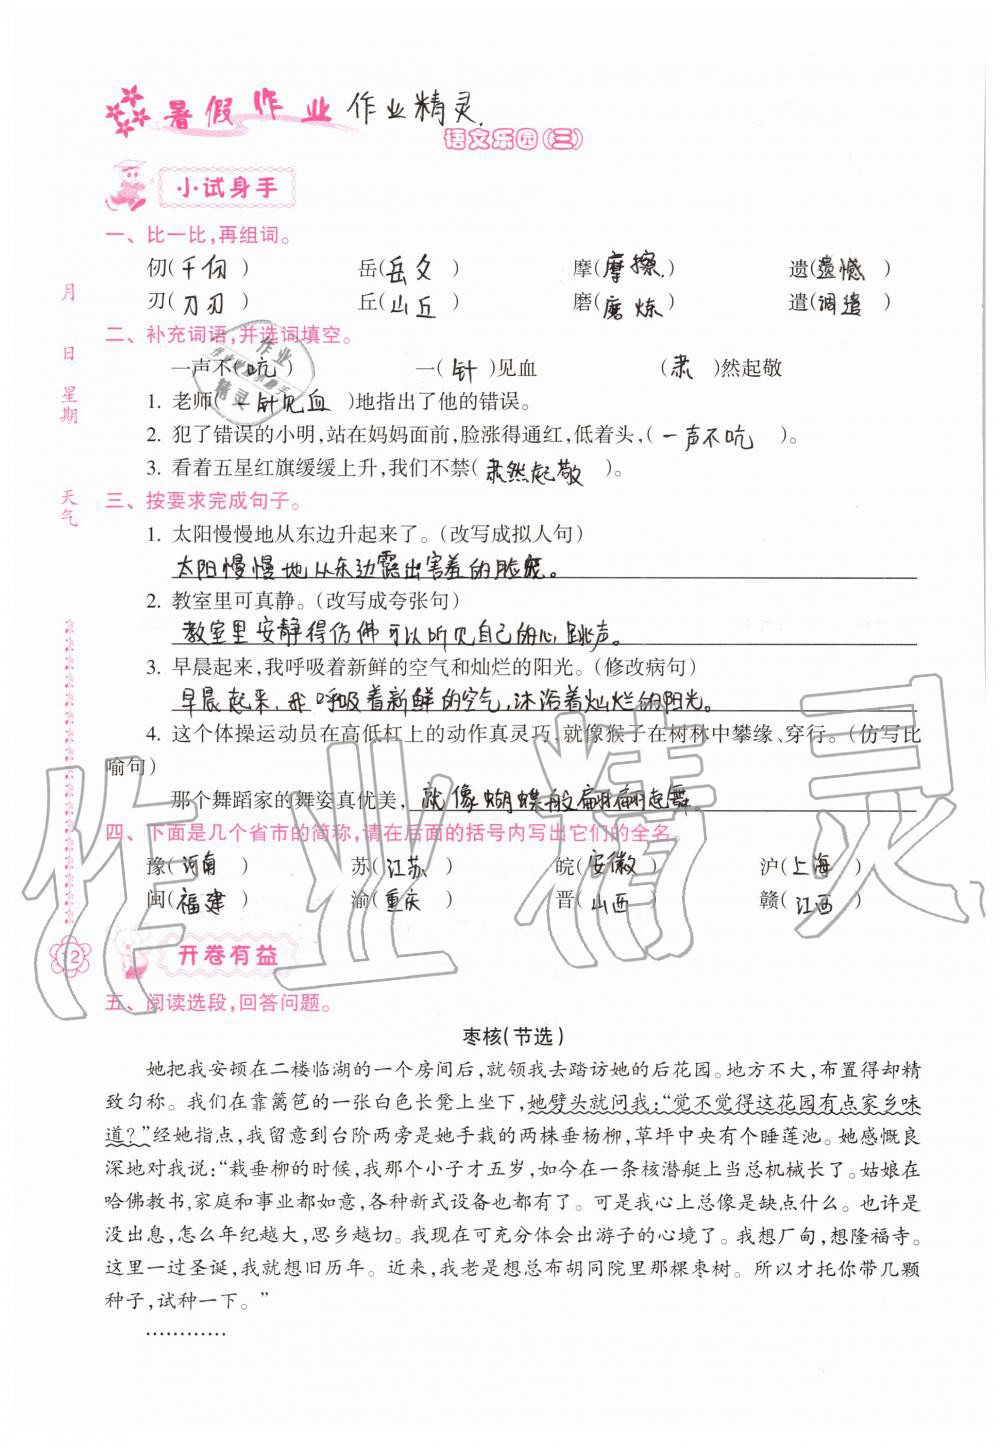 暑假作业 作业精灵.
语文乐园(三)
小试身手
一、比一比,再组词。
仞(千仞) 岳(岳父) 摩(摩擦) 遗(遗憾)
刃(刀刃) 丘(山丘) 磨(磨炼) 遣(调遣)
二、补充词语,并选词填空。
一声不(吭) 一(针)见血 (肃)然起敬
1. 老师(一针见血)地指出了他的错误。
2. 犯了错误的小明,站在妈妈面前,脸涨得通红,低着头,(一声不吭)。
3. 看着五星红旗缓缓上升,我们不禁(肃然起敬)。
三、按要求完成句子。
1. 太阳慢慢地从东边升起来了。(改写成拟人句)
太阳慢慢地从东边露出害羞的脸庞。
2. 教室里可真静。(改写成夸张句)
教室里安静得仿佛可以听见自己的心跳声。
3. 早晨起来,我呼吸着新鲜的空气和灿烂的阳光。(修改病句)
早晨起来,我呼吸着新鲜的空气,沐浴着灿烂的阳光。
4. 这个体操运动员在高低杠上的动作真灵巧,就像猴子在树林中攀缘、穿行。(仿写比
喻句)
那个舞蹈家的舞姿真优美,就像蝴蝶般翩翩起舞。
四、下面是几个省市的简称,请在后面的括号内写出它们的全名。
豫(河南) 苏(江苏) 皖(安徽) 沪(上海)
闽(福建) 渝(重庆) 晋(山西) 赣(江西)
开卷有益
五、阅读选段,回答问题。
枣核(节选)
她把我安顿在二楼临湖的一个房间后,就领我去踏访她的后花园。地方不大,布置得却精
致匀称。我们在靠篱笆的一张白色长凳上坐下,她劈头就问我:“觉不觉得这花园有点家乡味
道?”经她指点,我留意到台阶两旁是她手栽的两株垂杨柳,草坪中央有个睡莲池。她感慨良
深地对我说:“栽垂柳的时候,我那个小子才五岁,如今在一条核潜艇上当总机械长了。姑娘在
哈佛教书,家庭和事业都如意,各种新式设备也都有了。可是我心上总像是缺点什么。也许是
没出息,怎么年纪越大,思乡越切。我现在可充分体会出游子的心境了。我想厂甸,想隆福寺。
这里一过圣诞,我就想旧历年。近来,我老是想总布胡同院里那棵枣树。所以才托你带几颗
种子,试种一下。”
…………
月
日
星期
天气
12
作业精灵
作业
作业检查小助手
精灵